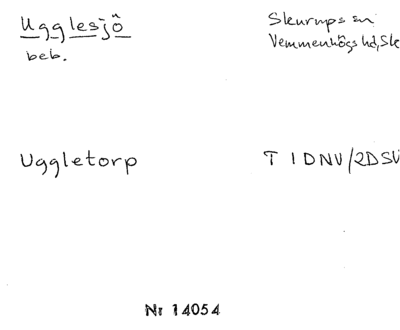 Ugglesjö
Skurups sn
beb.
Vemmenhögs hd, Sk
Uggletorp
T 1DNV/2DSV
Nr 14054